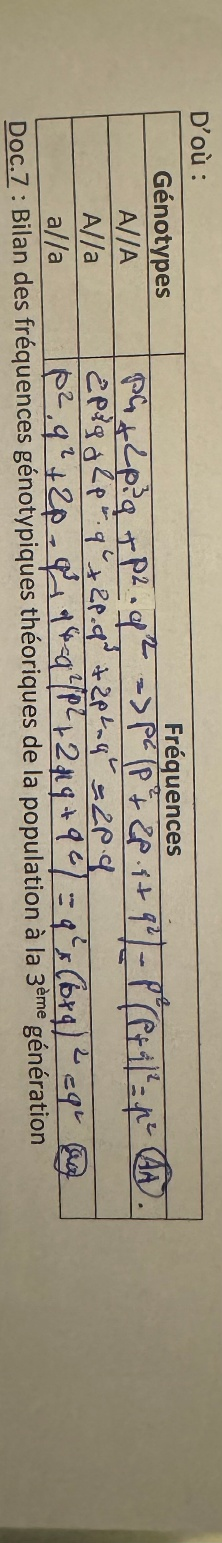 D'où :
Génotypes Fréquences
A//A p4 + 2p³q + p².q² => p²(p² + 2p.q + q²) = p²(p+q)² = p² (AA).
A//a 2p³q + 2p².q² + 2p.q³ + 2p².q² = 2p.q
a//a p².q² + 2p.q³ + q4 = q²(p² + 2pq + q²) = q² x (p+q)² = q² (aa)
Doc.7 : Bilan des fréquences génotypiques théoriques de la population à la 3ème génération